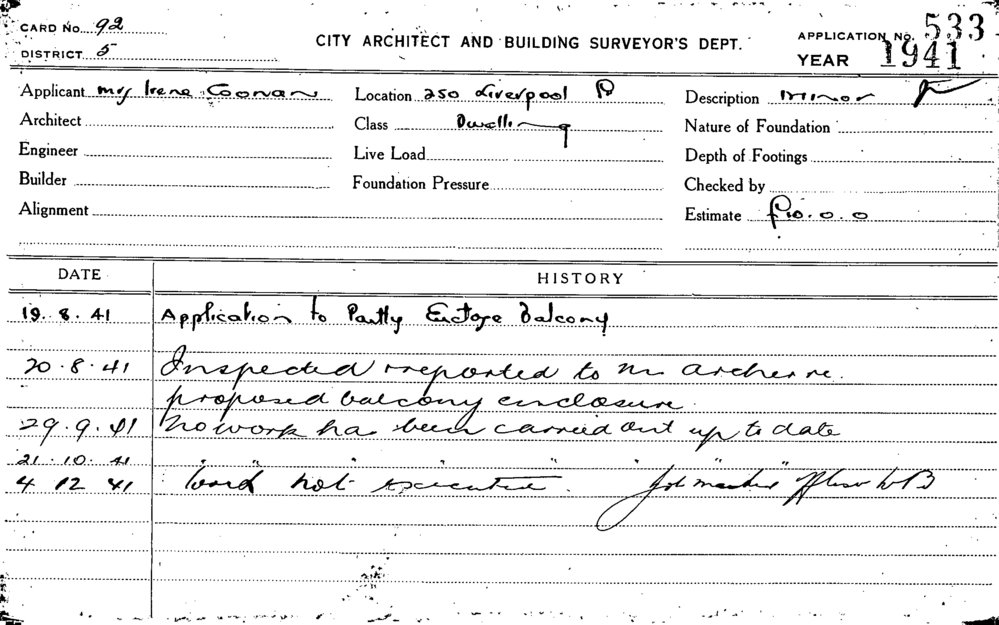 CARD No. 92
DISTRICT 5
CITY ARCHITECT AND BUILDING SURVEYOR'S DEPT.
APPLICATION No. 533
YEAR 1941
Applicant Mrs Irene Coonan
Location 250 Liverpool
Description Minor
Architect
Class Dwelling
Nature of Foundation
Engineer
Live Load
Depth of Footings
Builder
Foundation Pressure
Checked by
Alignment
Estimate £10.0.0
DATE
HISTORY
19.8.41 Application to Partly Enclose Balcony
20.8.41 Inspected & reported to Mr Archer re.
proposed balcony enclosure
29.9.41 No work has been carried out up to date
21.10.41 " " " " "
4 12 41 Work not